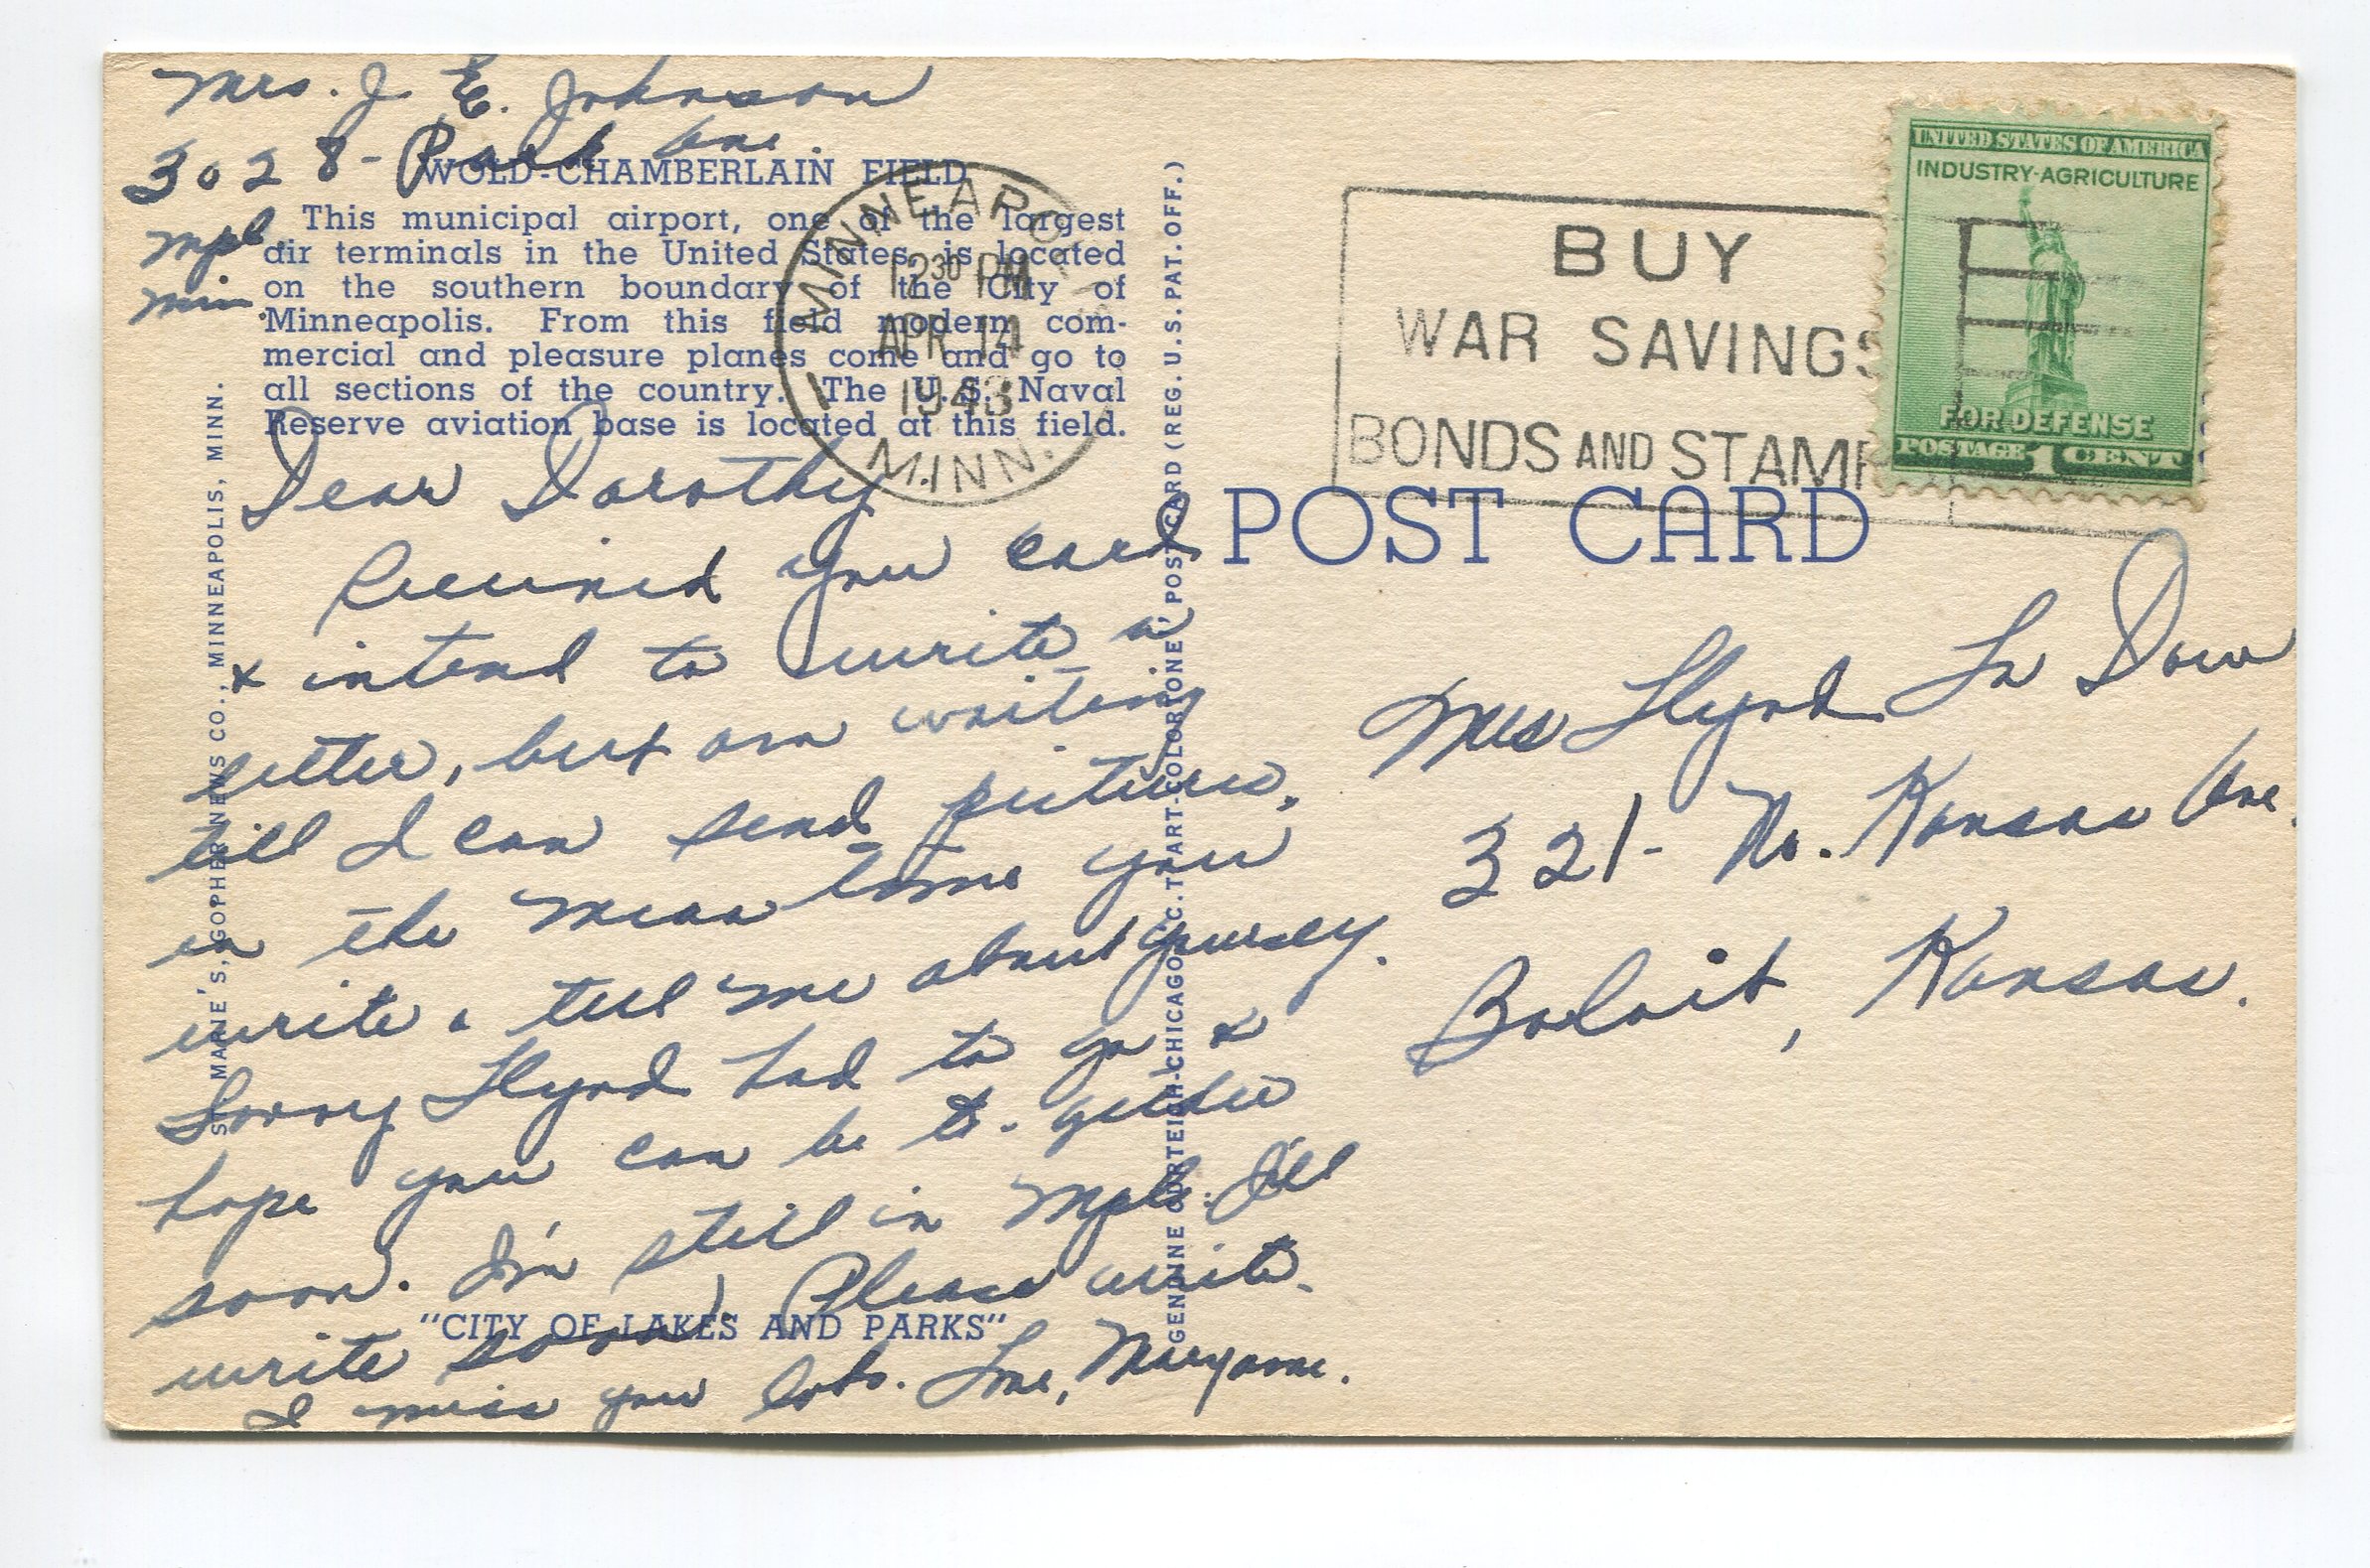 Mrs. J. E. Johnson
3028 - Park Ave.
Mpl.
Minn.
WOLD-CHAMBERLAIN FIELD
This municipal airport, one of the largest
air terminals in the United States, is located
on the southern boundary of the City of
Minneapolis. From this field modern com-
mercial and pleasure planes come and go to
all sections of the country. The U. S. Naval
Reserve aviation base is located at this field.
Dear Dorothy
Received your card
& intend to write a
letter, but am waiting
till I can send pictures.
in the mean time you
write & tell me about
Sorry Llynd had to go &
hope you can be to-gether
soon. I'm still in Mpls. I'll
write soon. Please write.
I miss you lots. Love, Maryanne.
"CITY OF LAKES AND PARKS"
ST. MARIE'S, GOPHER NEWS CO., MINNEAPOLIS, MINN.
GENUINE CURTEICH-CHICAGO "C.T. ART-COLORTONE" POST CARD (REG. U. S. PAT. OFF.)
MINNEAPOLIS
12 30 PM
APR 14
1943
MINN.
BUY
WAR SAVINGS
BONDS AND STAMP
UNITED STATES OF AMERICA
INDUSTRY-AGRICULTURE
FOR DEFENSE
POSTAGE 1 CENT
POST CARD
Mrs Llynd La Dow
321 - No. Kansas Ave.
Beloit, Kansas.